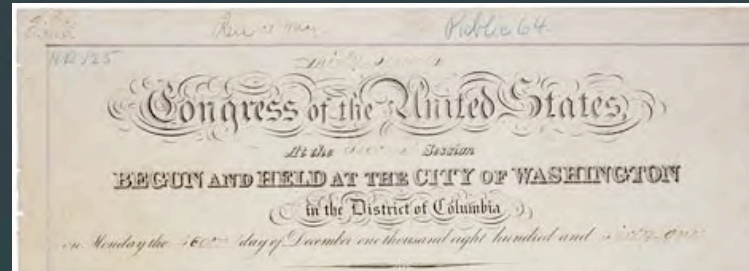 Public 64.
Congress of the United States,
At the Session
BEGUN AND HELD AT THE CITY OF WASHINGTON
in the District of Columbia
on Monday the day of December one thousand eight hundred and sixty-one